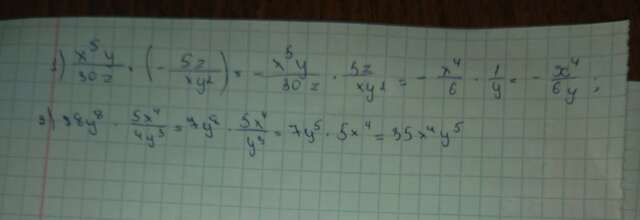 1) x⁵y/30z · (- 5z/xy²) = - x⁵y/30z · 5z/xy² = - x⁴/6 · 1/y = - x⁴/6y ;
2) 28y⁸ · 5x⁴/4y³ = 7y⁸ · 5x⁴/y³ = 7y⁵ · 5x⁴ = 35x⁴y⁵